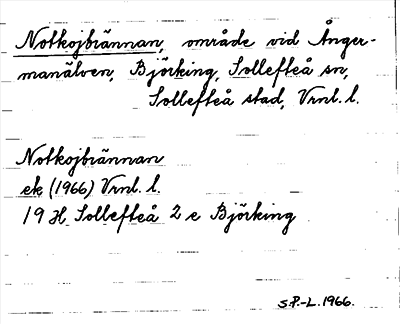 Notkojbrännan, område vid Ånger-
manälven, Björking, Sollefteå sn,
Sollefteå stad, Vrnl. l.
Notkojbrännan
ek (1966) Vrnl. l.
19 H Sollefteå 2 e Björking
S.P.-L. 1966.